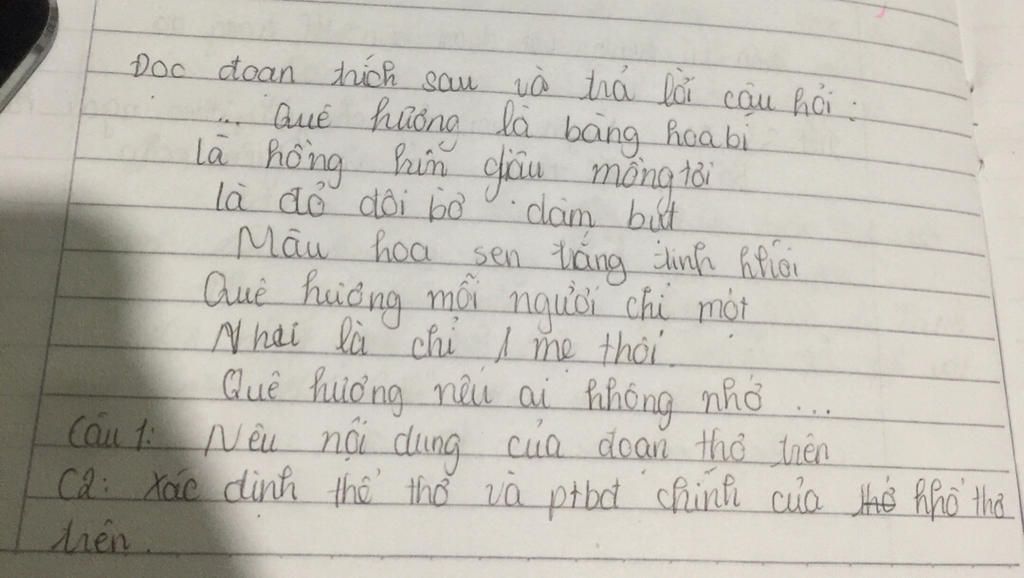 Đọc đoạn trích sau và trả lời câu hỏi:
... Quê hương là bàng hoa bị
là hồng hin giậu mồng tơi
là đỏ đôi bờ dâm bụt
Màu hoa sen trắng tinh khôi
Quê hương mỗi người chỉ một
Như là chỉ 1 mẹ thôi.
Quê hương nếu ai không nhớ ...
Câu 1: Nêu nội dung của đoạn thơ trên
C2: Xác định thể thơ và ptbđ chính của khổ thơ
trên.